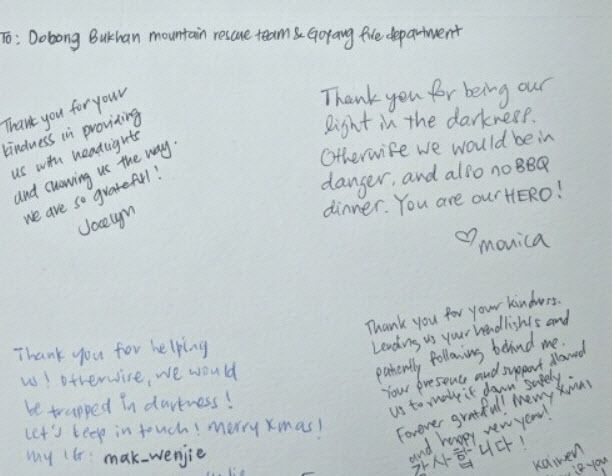 To: Dobong Bukhan mountain rescue team & Goyang fire department
Thank you for your
kindness in providing
us with headlights
and showing us the way.
we are so grateful!
Jocelyn
Thank you for being our
light in the darkness.
Otherwise we would be in
danger, and also no BBQ
dinner. You are our HERO!
♡ monica
Thank you for helping
us! otherwise, we would
be trapped in darkness!
Let's keep in touch! Merry Xmas!
my IG: mak_wenjie
Thank you for your kindness.
Lending us your headlights and
patiently following behind me.
Your presence and support allowed
us to make it down safely.
Forever grateful! Merry Xmas
and happy new year!
감사합니다!